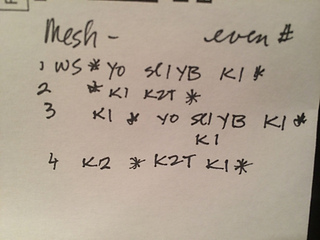 Mesh - even #
1 WS * YO Sl1YB K1 *
2 * K1 K2T *
3 K1 * YO Sl1YB K1 *
K1
4 K2 * K2T K1 *